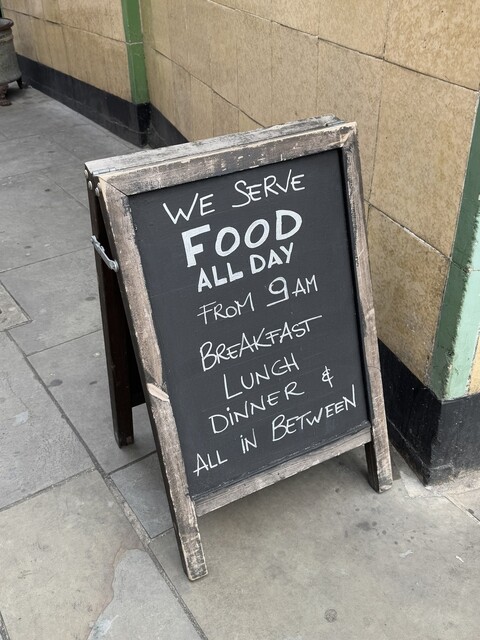 WE SERVE
FOOD
ALL DAY
FROM 9AM
BREAKFAST
LUNCH
DINNER &
ALL IN BETWEEN